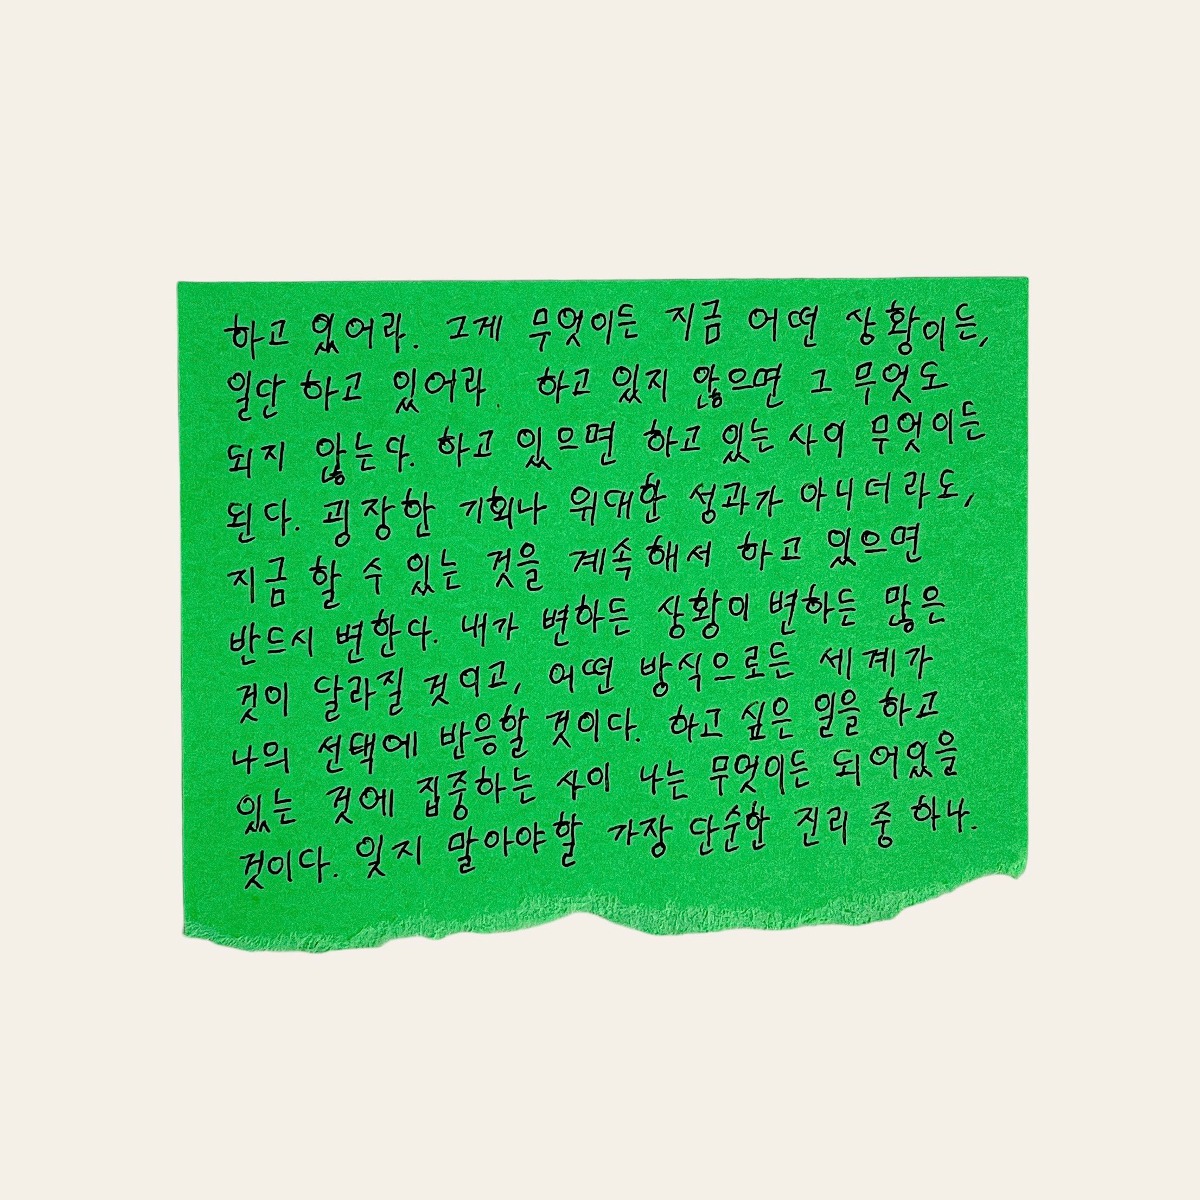 하고 있어라. 그게 무엇이든 지금 어떤 상황이든,
일단 하고 있어라. 하고 있지 않으면 그 무엇도
되지 않는다. 하고 있으면 하고 있는 사이 무엇이든
된다. 굉장한 기회나 위대한 성과가 아니더라도,
지금 할 수 있는 것을 계속해서 하고 있으면
반드시 변한다. 내가 변하든 상황이 변하든 많은
것이 달라질 것이고, 어떤 방식으로든 세계가
나의 선택에 반응할 것이다. 하고 싶은 일을 하고
있는 것에 집중하는 사이 나는 무엇이든 되어있을
것이다. 잊지 말아야할 가장 단순한 진리 중 하나.